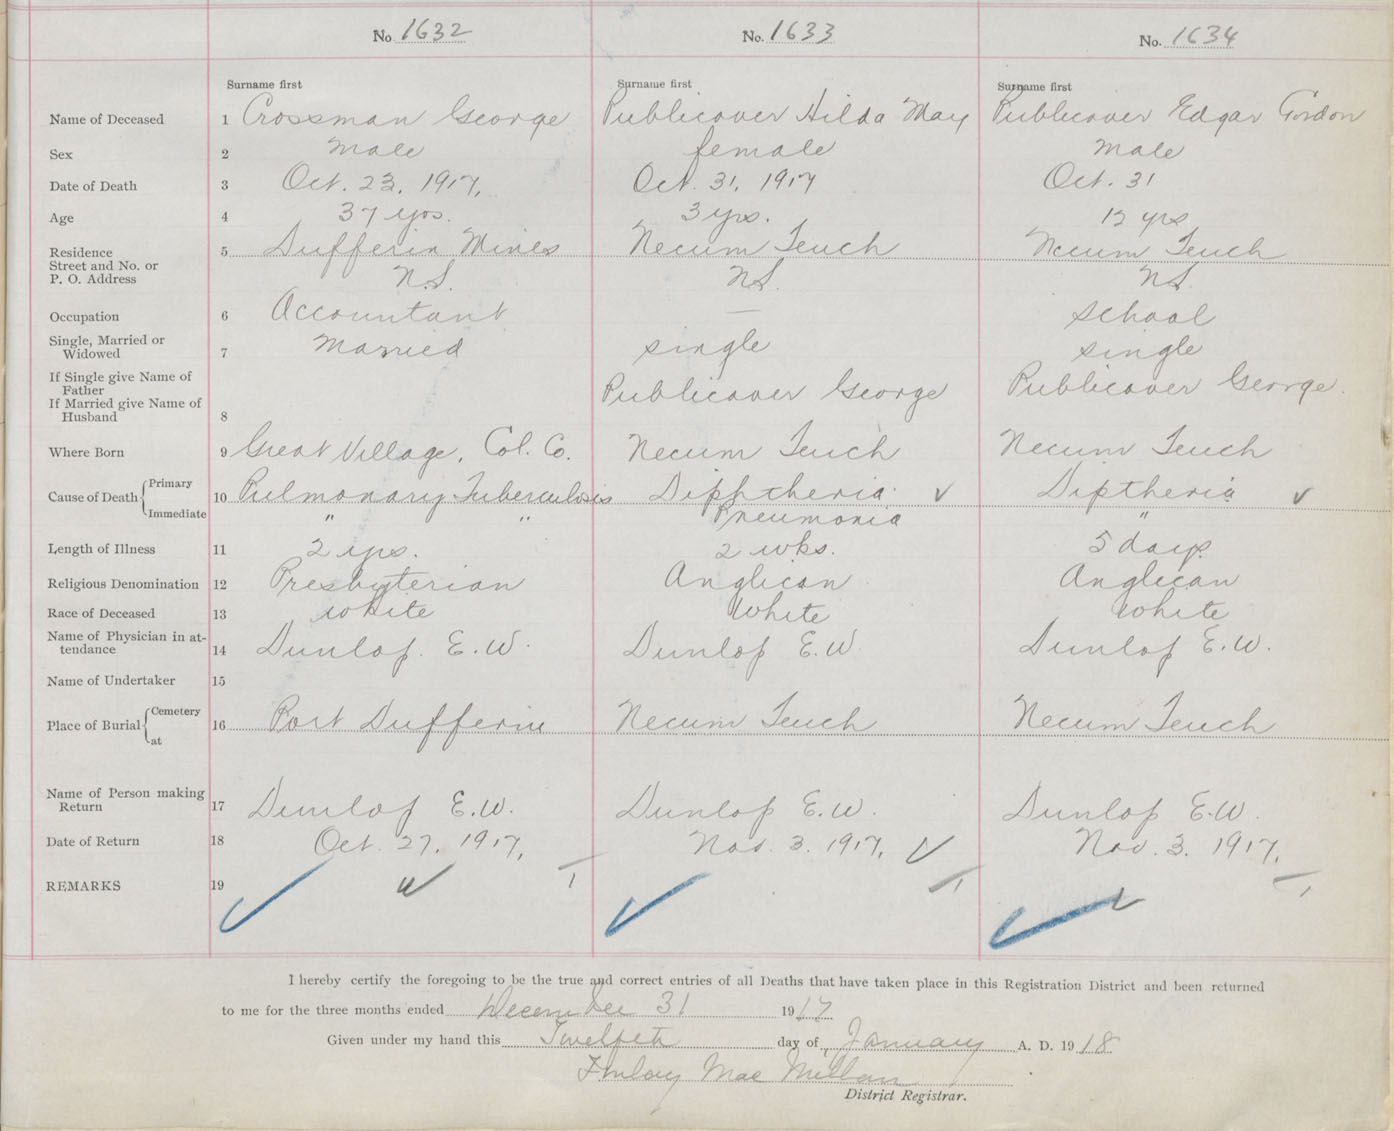 No 1632 No. 1633 No. 1634
Surname first Surname first Surname first
Name of Deceased 1 Crossman George Publicover Hilda May Publicover Edgar Gordon
Sex 2 Male female Male
Date of Death 3 Oct. 23, 1917, Oct. 31, 1917 Oct. 31
Age 4 37 yrs. 3 yrs. 12 yrs
Residence 5 Dufferin Mines Necum Teuch Necum Teuch
Street and No. or
P. O. Address N.S. N.S. N.S.
Occupation 6 Accountant — school
Single, Married or
Widowed 7 Married single single
If Single give Name of
Father Publicover George Publicover George.
If Married give Name of
Husband 8
Where Born 9 Great Village, Col. Co. Necum Teuch Necum Teuch
Cause of Death Primary 10 Pulmonary Tuberculosis Diphtheria ✓ Diptheria ✓
Immediate " " Pneumonia "
Length of Illness 11 2 yrs. 2 wks. 5 days.
Religious Denomination 12 Presbyterian Anglican Anglican
Race of Deceased 13 White White White
Name of Physician in at-
tendance 14 Dunlop. E.W. Dunlop E.W. Dunlop E.W.
Name of Undertaker 15
Place of Burial Cemetery 16 Port Dufferin Necum Teuch Necum Teuch
at
Name of Person making
Return 17 Dunlop E.W. Dunlop E.W. Dunlop E.W.
Date of Return 18 Oct. 27, 1917, Nov. 3. 1917, ✓ Nov. 3. 1917,
REMARKS 19
I hereby certify the foregoing to be the true and correct entries of all Deaths that have taken place in this Registration District and been returned
to me for the three months ended December 31 1917
Given under my hand this Twelfth day of January A. D. 1918
Finlay Mac Millan
District Registrar.